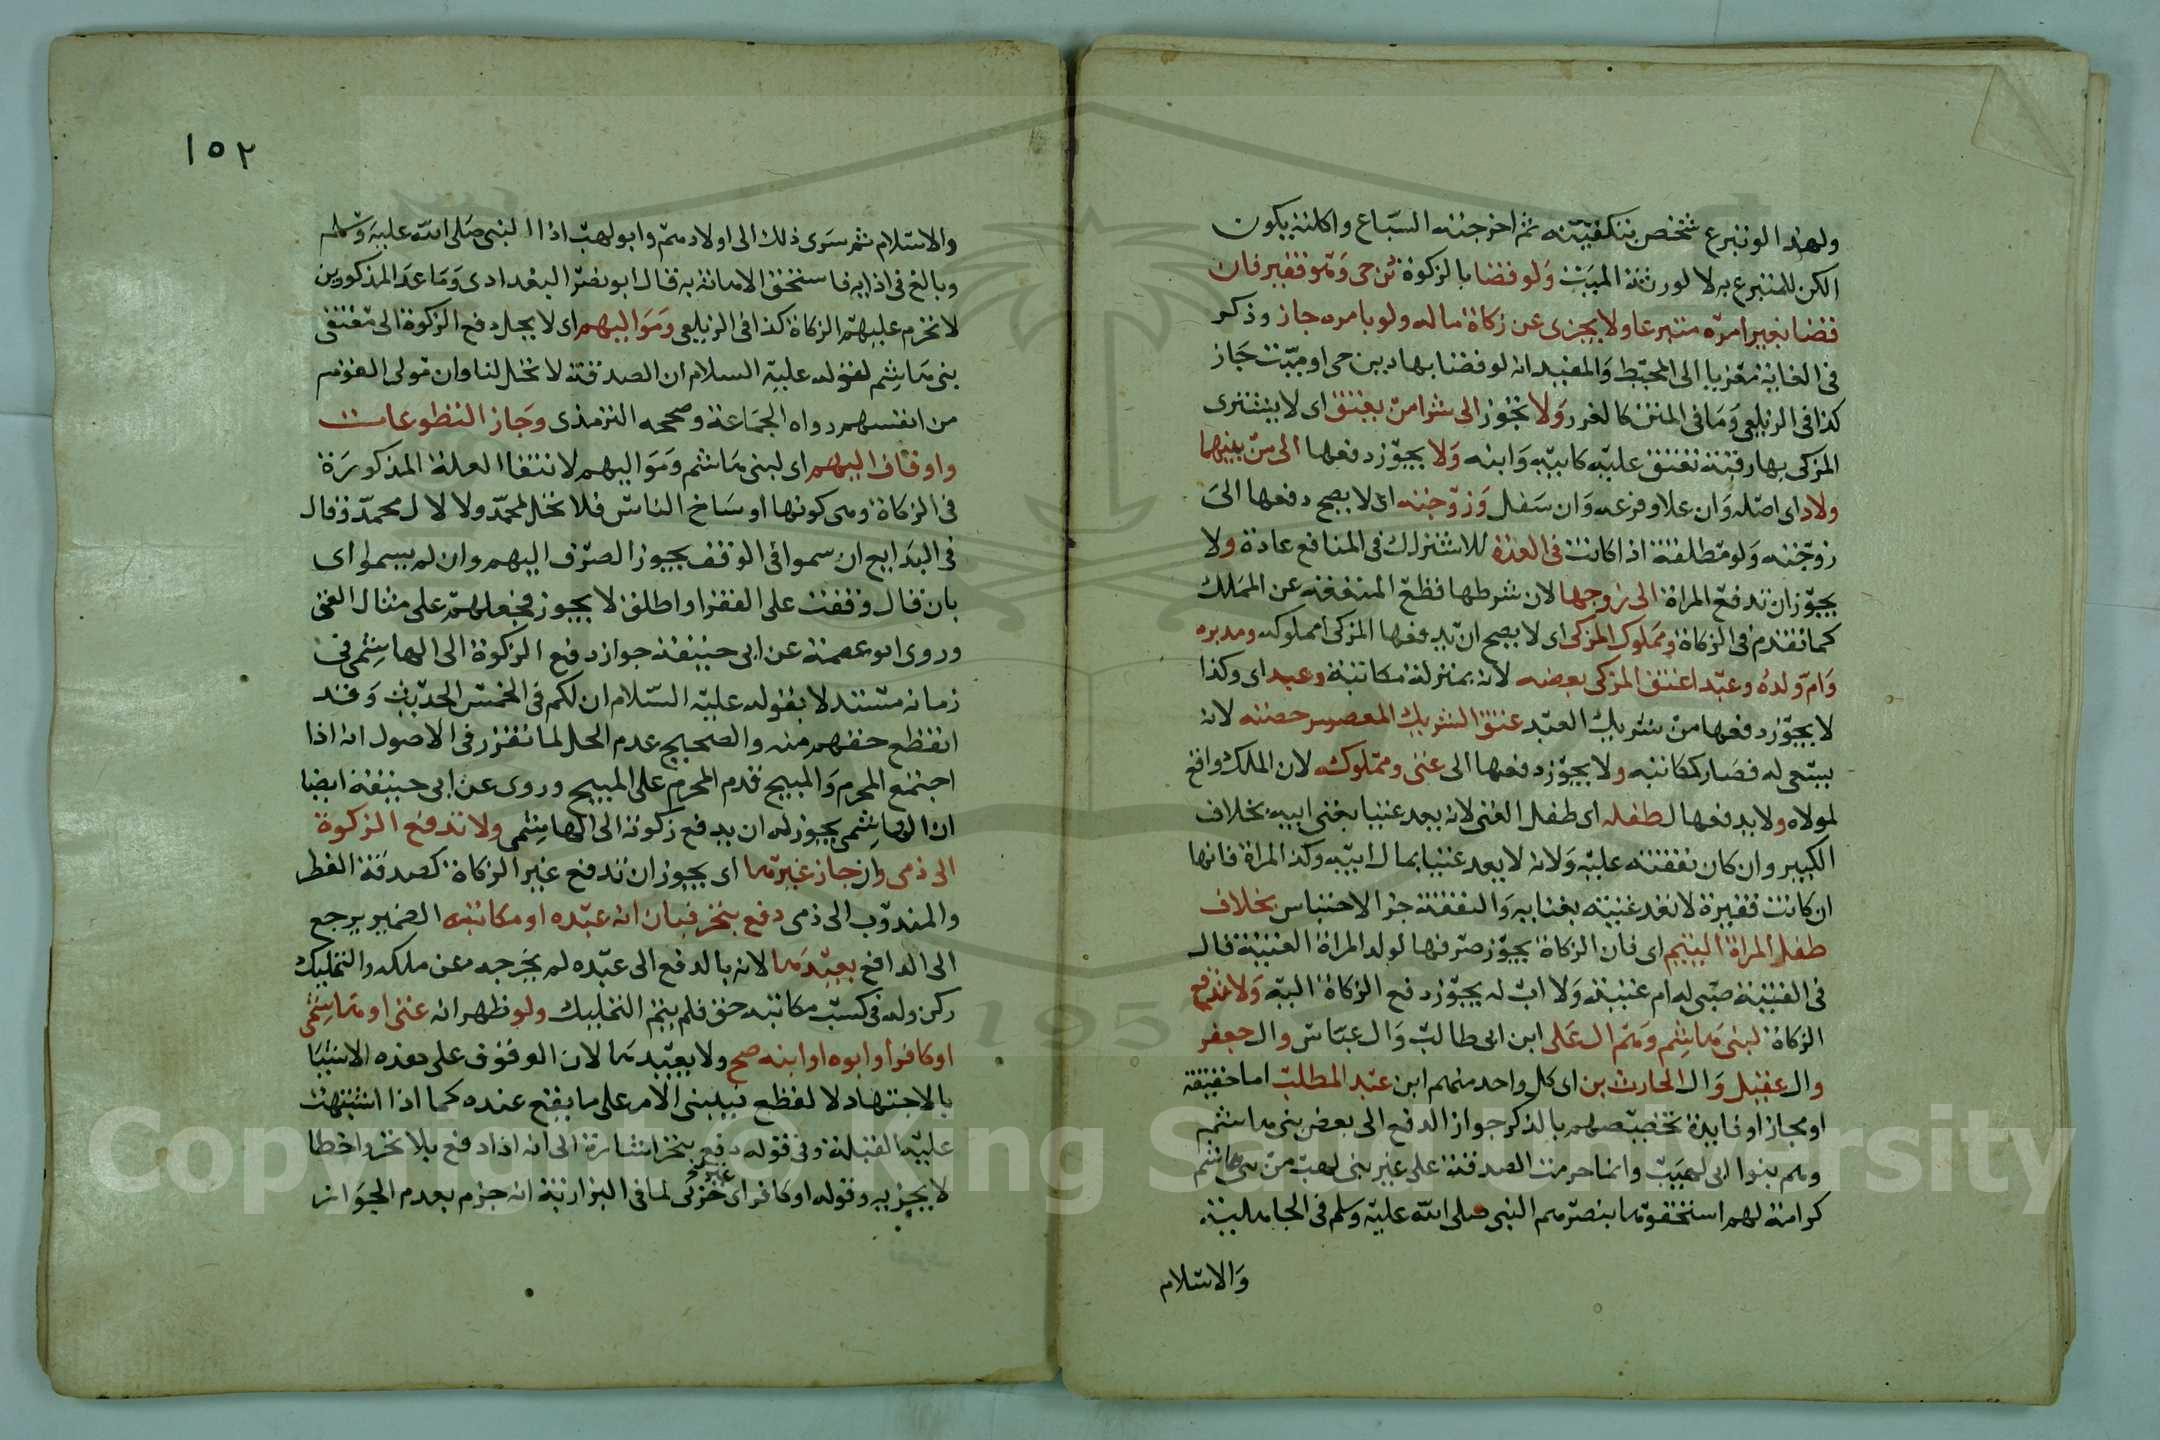 ولهذا لو تبرع شخص بتكفينه ثم اخرجته السباع واكلته يكون
الكفن للمتبرع به لا لورثة الميت ولو قضا بالزكوة دين حى وهو فقير فان
قضا بغير امره متبرعا ولا يجزى عن زكاة ماله ولو بامره جاز وذكر
فى الغاية معزيا الى المحيط والمفيد انه لو قضا بها دين حى او ميت جاز
كذا فى الزيلعى وما فى المتن كالغرر ولا تجوز الى شرا من يعتق اى لا يشترى
المزكى بها رقبة تعتق عليه كابيه وابنه ولا يجوز دفعها الى من بينهما
ولاد اى اصله وان علا وفرعه وان سفل وزوجته اى لا يصح دفعها الى
زوجته ولو مطلقة اذا كانت فى العدة للاشتراك فى المنافع عادة ولا
يجوز ان تدفع المراة الى زوجها لان شرطها قطع المنفعة عن المملك
كما تقدم فى الزكاة ومملوك المزكى اى لا يصح ان يدفعها المزكى لمملوكه ومدبره
وام ولده وعبد اعتق المزكى بعضه لانه بمنزلة مكاتبة وعبد اى وكذا
لا يجوز دفعها من شريك العبد عتق الشريك المعسر حصته لانه
يسعى له فصار كمكاتبه ولا يجوز دفعها الى غنى ومملوكه لان الملك واقع
لمولاه ولا يدفعها لطفله اى طفل الغنى لانه يعد غنيا بغنى ابيه بخلاف
الكبير وان كان نفقته عليه ولانه لا يعد غنيا بمال ابيه وكذا المراة فانها
ان كانت فقيرة لا تعد غنية بغناء به والنفقة جزا الاحتباس بخلاف
طفل المراة اليتيم اى فان الزكاة يجوز صرفها لولد المراة الغنية قال
فى القنية صبى له ام غنية ولا اب له يجوز دفع الزكاة اليه ولا تدفع
الزكاة لبنى هاشم وهم ال على ابن ابى طالب وال عباس وال جعفر
وال عقيل وال الحارث بن اى كل واحد منهم ابن عبد المطلب اما حقيقة
او مجاز او فايدة تخصيصهم بالذكر جواز الدفع الى بعض بنى هاشم
وهم بنوا ابى لهب وانما حرمت الصدقة على غير بنى لهب من بنى هاشم
كرامة لهم استحقوها بنصرهم النبى صلى الله عليه وسلم فى الجاهلية
والاسلام
١٥٢
والاسلام ثم سرى ذلك الى اولادهم وابو لهب اذا النبى صلى الله عليه وسلم
وبالغ فى اذايه فاستحق الامانة به قال ابو نصر البغدادى وما عدا المذكورين
لا تحرم عليهم الزكاة كذا فى الزيلعى ومواليهم اى لا يحل دفع الزكوة الى معتقى
بنى هاشم لقوله عليه السلام ان الصدقة لا تحل لنا وان مولى القوم
من انفسهم رواه الجماعة وصححه الترمذى وجاز التطوعات
واوقاف اليهم اى لبنى هاشم ومواليهم لانتفا العلة المذكورة
فى الزكاة وهى كونها اوساخ الناس فلا تحل لمحمد ولا لال محمد وقال
فى البدايع ان سموا فى الوقف يجوز الصرف اليهم وان لم يسموا اى
بان قال وقفت على الفقرا واطلق لا يجوز فجعلهم على مثال الغنى
وروى ابو عصمة عن ابى حنيفة جواز دفع الزكوة الى الهاشمى فى
زمانه مستدلا بقوله عليه السلام ان لكم فى الخمس الحديث وقد
انقطع حقهم منه والصحيح عدم الحل لما تقرر فى الاصول انه اذا
اجتمع المحرم والمبيح قدم المحرم على المبيح وروى عن ابى حنيفة ايضا
ان الهاشمى يجوز له ان يدفع زكوته الى الهاشمى ولا تدفع الزكوة
الى ذمى وان جاز غيرها اى يجوز ان تدفع غير الزكاة كصدقة الفطر
والمندوب الى ذمى دفع بتحر فبان انه عبده او مكاتبه الضمير يرجع
الى الدافع يعيدها لانه بالدفع الى عبده لم يخرجه عن ملكه والتمليك
ركن وله فى كسب مكاتبه حق فلم يتم التمليك ولو ظهر انه غنى او هاشمى
او كافر او ابوه او ابنه صح ولا يعيدها لان الوقوف على هذه الاشيا
بالاجتهاد لا لقطع فيبنى الامر على ما يقع عنده كما اذا اشتبهت
عليه القبلة وفى قوله دفع بتحر اشارة الى انه اذا دفع بلا تحر واخطا
لا يجزيه وقوله او كافر اى غير حربى لما فى البزازية انه جزم بعدم الجواز